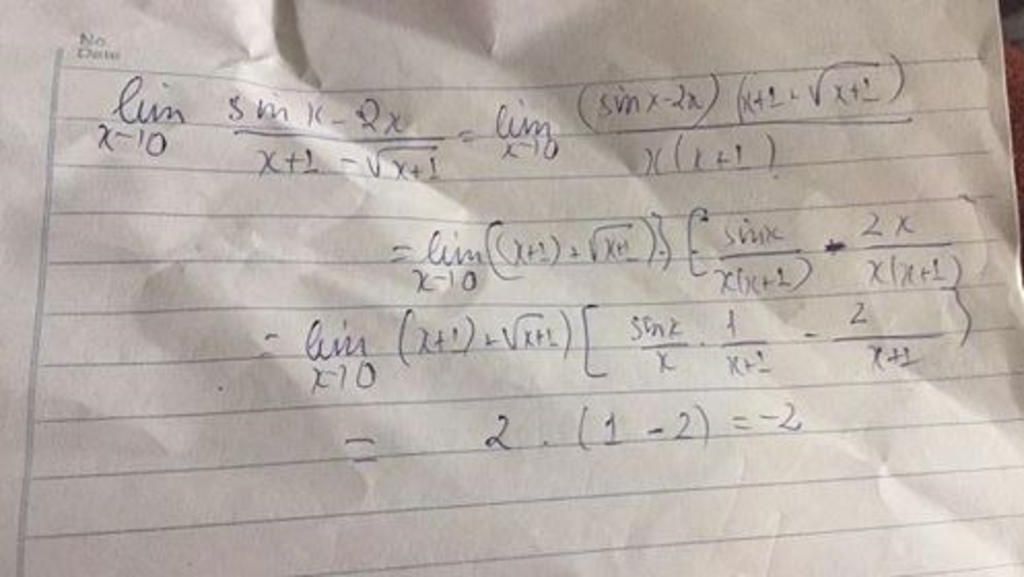 No
Date
lim x→0 (sin x - 2x)/(x+1 - √(x+1)) = lim x→0 (sin x - 2x)(x+1 + √(x+1))/(x(x+1))
= lim x→0 ((x+1) + √(x+1)) · [sin x/(x(x+1)) - 2x/(x(x+1))]
= lim x→0 (x+1) + √(x+1)) [sin x/x · 1/(x+1) - 2/(x+1)}
= 2 · (1 - 2) = -2